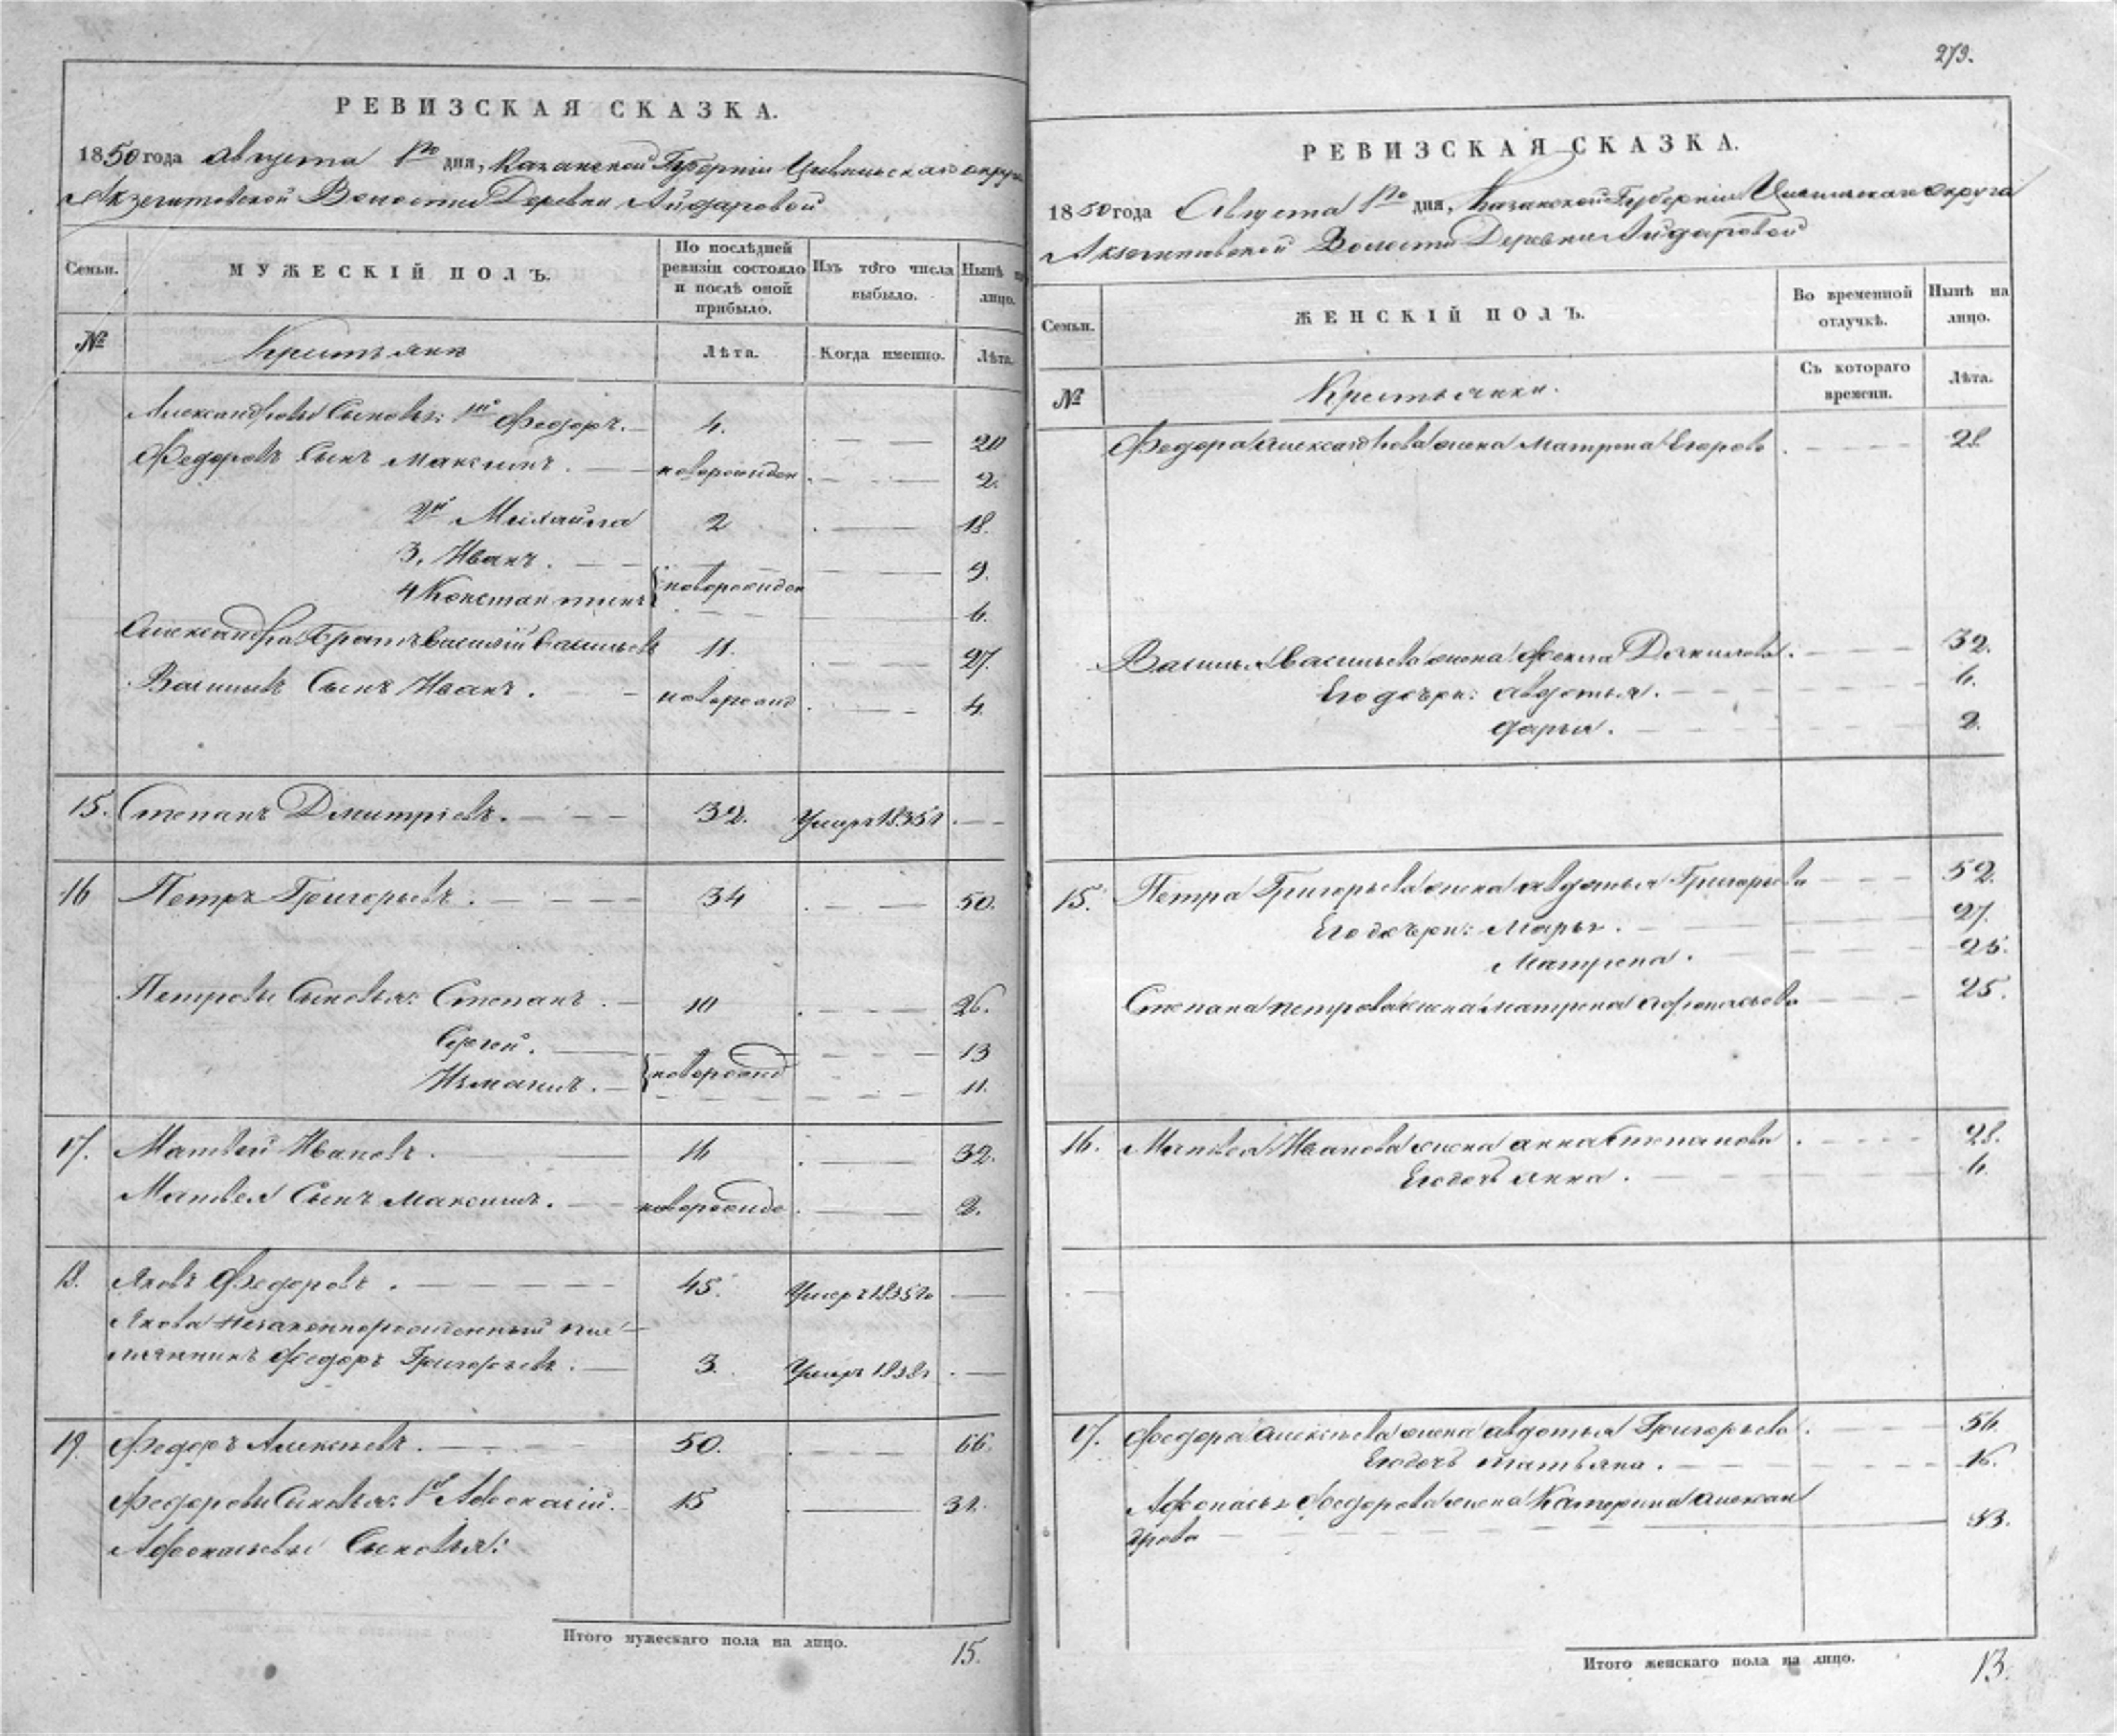 РЕВИЗСКАЯ СКАЗКА.
1850 года Августа 1го дня, Казанской Губерніи Цивильскаго округа
Акзегитовской Волости Деревни Айдаровой
Семьи. МУЖЕСКІЙ ПОЛЪ. По послѣдней ревизіи состояло и послѣ оной прибыло. Изъ того числа выбыло. Нынѣ на лицо.
№ Крестьяне Лѣта. Когда именно. Лѣта.
Александровы Сыновья: 1й Федоръ. 4. 20
Федоровъ Сынъ Максимъ. новорожден 2.
2й Михайла 2 18.
3. Иванъ. 9.
4 Константинъ новорожден 6.
Александра Братъ Василій Васильевъ 11. 27.
Васильевъ Сынъ Иванъ. новорожд 4.
15. Степанъ Дмитріевъ. 32. Умеръ 1835г
16 Петръ Григорьевъ. 34 50.
Петровы Сыновья: Степанъ. 10 26.
Сергей. 13
новорожд 11.
17. Матвей Ивановъ. 16 32.
Матвея Сынъ Максимъ. новорожде 2.
18. Яковъ Федоровъ. 45. Умеръ 1835го
Якова Незаконнорожденный пле-
мянникъ Федоръ Григорьевъ. 3. Умеръ 1838г
19. Федоръ Алексеевъ. 50. 66.
Федоровы Сыновья: 1й Афонасій. 15 31.
Афонасьевы Сыновья:
Итого мужескаго пола на лицо. 15.
273.
РЕВИЗСКАЯ СКАЗКА.
1850 года Августа 1го дня, Казанской Губерніи Цивильскаго Округа
Акзегитовской Волости Деревни Айдаровой
Семьи. ЖЕНСКІЙ ПОЛЪ. Во временной отлучкѣ. Нынѣ на лицо.
№ Крестьянки. Съ котораго времени. Лѣта.
Федора Александрова жена Матрена Егорова 28
Василья Васильева жена Фекла Данилова. 32.
Его дочери: Авдотья. 6.
Дарья. 2.
15. Петра Григорьева жена Авдотья Григорьева 52.
Его дочери: Марья. 27.
Матрена. 25.
Степана Петрова жена Матрена Афонасьева 25.
16. Матвея Иванова жена Анна Степанова 28.
Его дочь Анна. 6.
17. Федора Алексеева жена Авдотья Григорьева. 56.
Его дочь Татьяна. 16.
Афонасья Федорова жена Катерина Алексан
дрова 33.
Итого женскаго пола на лицо. 13.